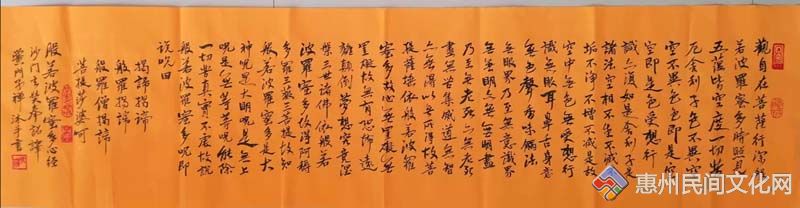 觀自在菩薩行深般
若波羅蜜多時照見
五蘊皆空度一切苦
厄舍利子色不異空
空不異色色即是空
空即是色受想行
識亦復如是舍利子是
諸法空相不生不滅不
垢不淨不增不減是故
空中無色無受想行
識無眼耳鼻舌身意
無色聲香味觸法
無眼界乃至無意識界
無無明亦無無明盡
乃至無老死亦無老死
盡無苦集滅道無智
亦無得以無所得故菩
提薩埵依般若波羅
蜜多故心無罣礙無
罣礙故無有恐怖遠
離顛倒夢想究竟涅
槃三世諸佛依般若
波羅蜜多故得阿耨
多羅三藐三菩提故知
般若波羅蜜多是大
神咒是大明咒是無上
咒是無等等咒能除
一切苦真實不虛故說
般若波羅蜜多咒即
說咒曰
揭諦揭諦
般羅揭諦
般羅僧揭諦
菩提薩婆訶
般若波羅蜜多心經
沙門玄奘奉詔譯
沐手書
惠州民间文化网